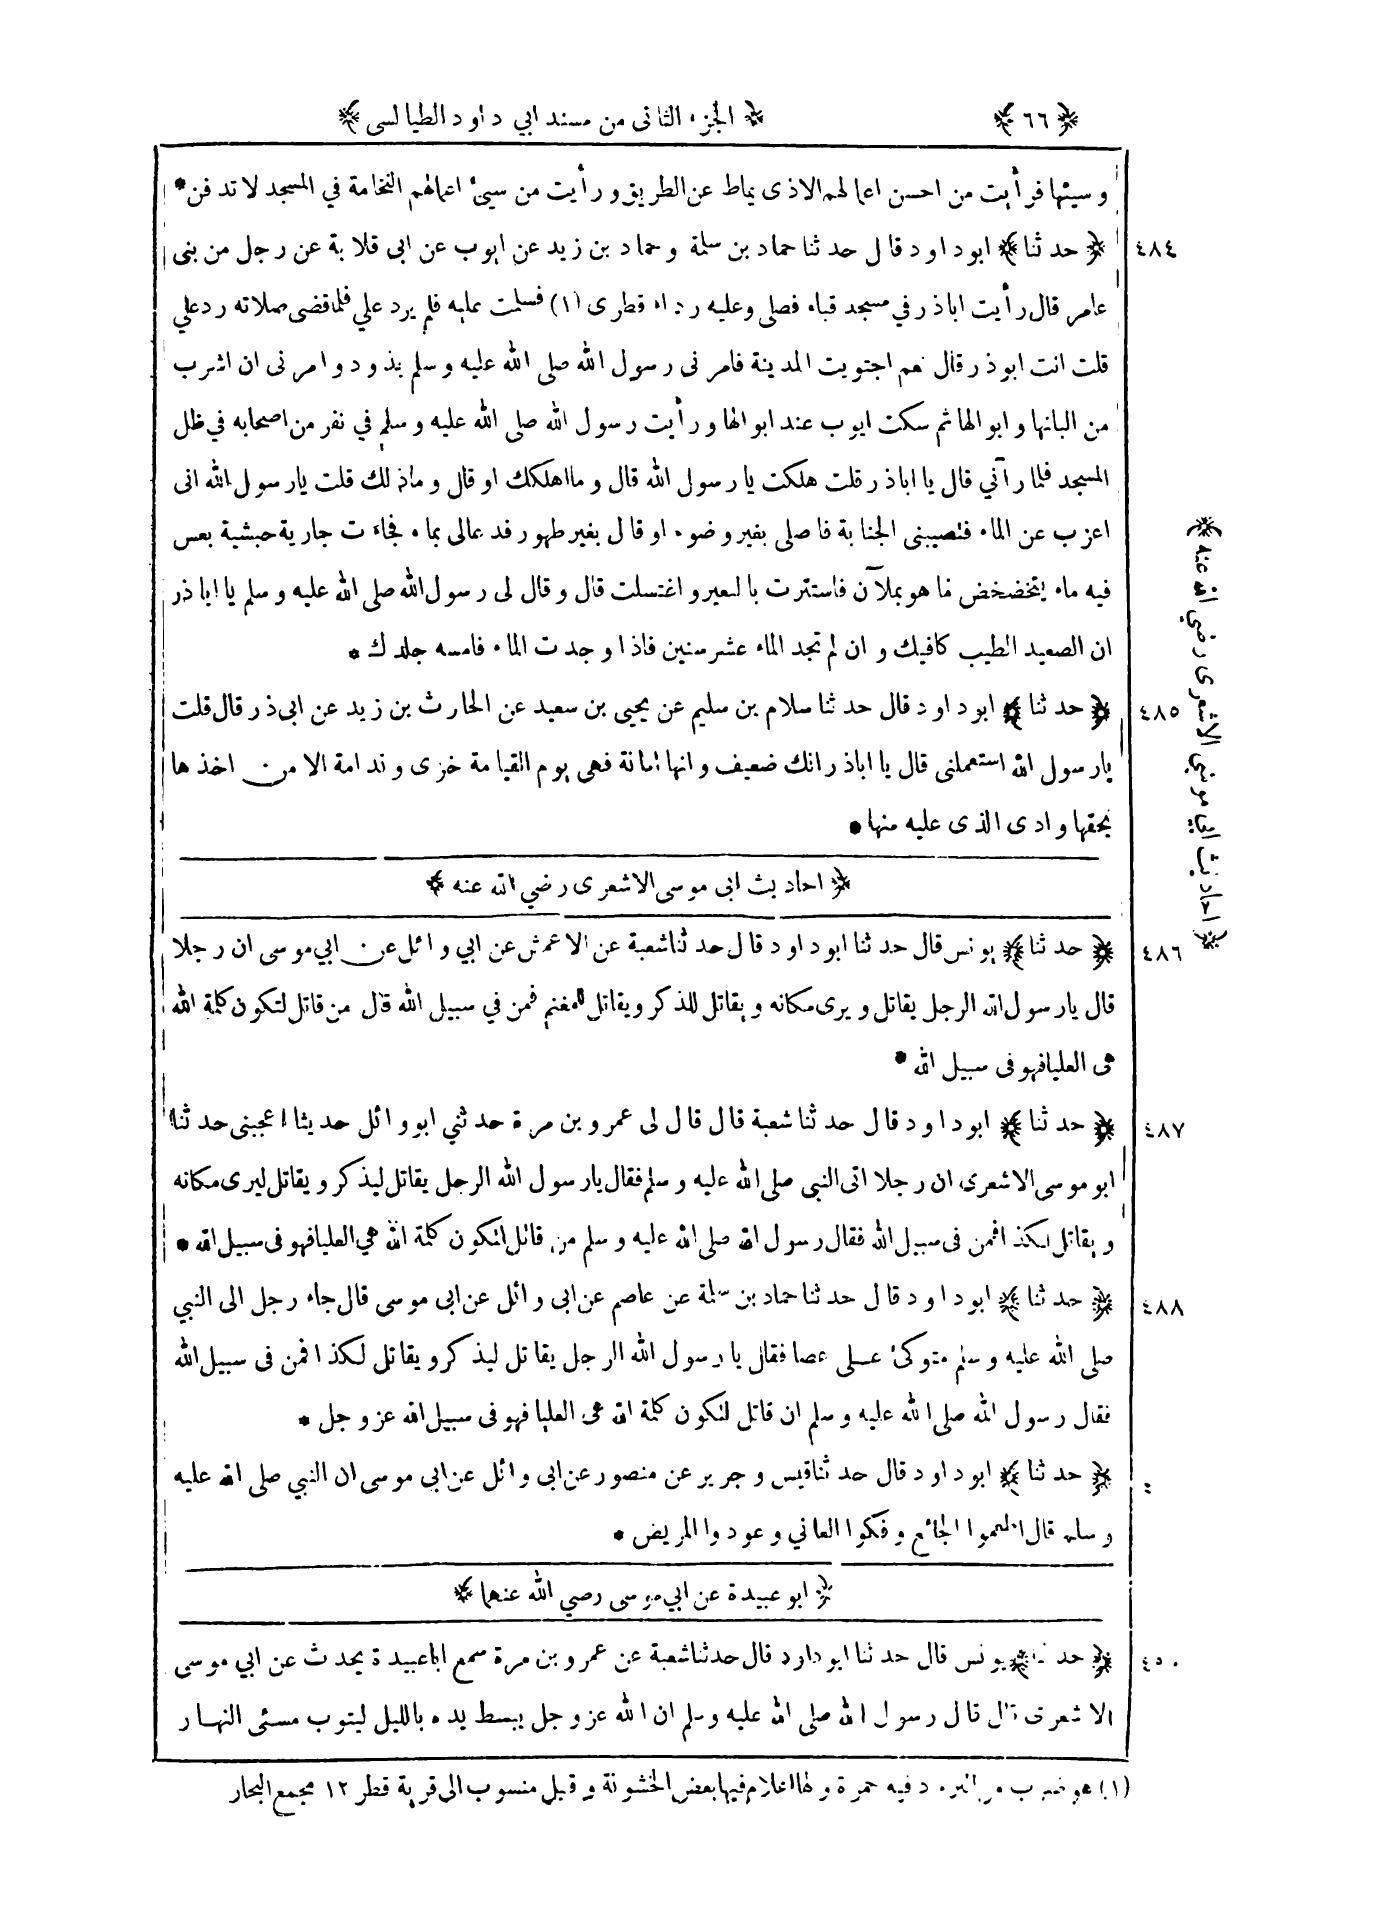 ﴿ ٦٦ ﴾
﴿ الجزء الثانى من مسند ابي داود الطيالسى ﴾
وسيئها فرأيت من احسن اعمالهم الاذى يماط عن الطريق ورأيت من سيئ اعمالهم النخامة في المسجد لا تدفن *
٤٨٤ ﴿ حدثنا ﴾ ابوداود قال حدثنا حماد بن سلمة وحماد بن زيد عن ايوب عن ابى قلابة عن رجل من بنى
عامر قال رأيت اباذر في مسجد قباء فصلى وعليه رداء قطرى (١) فسلمت عليه فلم يرد علي فلما قضى صلاته رد علي
قلت انت ابوذر قال نعم اجتويت المدينة فامرنى رسول الله صلى الله عليه وسلم بذود وامرنى ان اشرب
من البانها وابوالها ثم سكت ايوب عند ابوالها ورأيت رسول الله صلى الله عليه وسلم في نفر من اصحابه في ظل
المسجد فلما رآني قال يا اباذر قلت هلكت يا رسول الله قال وما اهلكك او قال وماذلك قلت يا رسول الله انى
اعزب عن الماء فتصيبنى الجنابة فاصلى بغير وضوء او قال بغير طهور فدعالى بماء فجاءت جارية حبشية بعس
فيه ماء يتخضخض ما هو بملآن فاستترت بالبعير واغتسلت قال وقال لى رسول الله صلى الله عليه وسلم يا اباذر
ان الصعيد الطيب كافيك وان لم تجد الماء عشر سنين فاذا وجدت الماء فامسه جلدك *
٤٨٥ ﴿ حدثنا ﴾ ابوداود قال حدثنا سلام بن سليم عن يحيى بن سعيد عن الحارث بن زيد عن ابى ذر قال قلت
يا رسول الله استعملنى قال يا اباذر انك ضعيف وانها امانة فهى يوم القيامة خزى وندامة الا من اخذها
بحقها وادى الذى عليه منها *
﴿ احاديث ابى موسى الاشعرى رضي الله عنه ﴾
﴿ احاديث ابي موسى الاشعرى رضي الله عنه ﴾
٤٨٦ ﴿ حدثنا ﴾ يونس قال حدثنا ابوداود قال حدثنا شعبة عن الاعمش عن ابي وائل عن ابي موسى ان رجلا
قال يا رسول الله الرجل يقاتل ويرى مكانه ويقاتل للذكر ويقاتل للمغنم فمن في سبيل الله قال من قاتل لتكون كلمة الله
هى العليا فهو فى سبيل الله *
٤٨٧ ﴿ حدثنا ﴾ ابوداود قال حدثنا شعبة قال قال لى عمرو بن مرة حدثني ابووائل حديثا اعجبنى حدثنا
ابو موسى الاشعرى ان رجلا اتى النبى صلى الله عليه وسلم فقال يا رسول الله الرجل يقاتل ليذكر ويقاتل ليرى مكانه
ويقاتل لكذا فمن فى سبيل الله فقال رسول الله صلى الله عليه وسلم من قاتل لتكون كلمة الله هي العليا فهو فى سبيل الله *
٤٨٨ ﴿ حدثنا ﴾ ابوداود قال حدثنا حماد بن سلمة عن عاصم عن ابى وائل عن ابى موسى قال جاء رجل الى النبي
صلى الله عليه وسلم متوكئ على عصا فقال يا رسول الله الرجل يقاتل ليذكر ويقاتل لكذا فمن فى سبيل الله
فقال رسول الله صلى الله عليه وسلم ان قاتل لتكون كلمة الله هى العليا فهو فى سبيل الله عز وجل *
﴿ حدثنا ﴾ ابوداود قال حدثنا قيس وجرير عن منصور عن ابى وائل عن ابى موسى ان النبي صلى الله عليه
وسلم قال اطعموا الجائع وفكوا العاني وعودوا المريض *
﴿ ابوعبيدة عن ابي موسى رضي الله عنهما ﴾
٤٥٠ ﴿ حدثنا ﴾ يونس قال حدثنا ابوداود قال حدثنا شعبة عن عمرو بن مرة سمع اباعبيدة يحدث عن ابي موسى
الاشعرى قال قال رسول الله صلى الله عليه وسلم ان الله عز وجل يبسط يده بالليل ليتوب مسئى النهار
(١) هو ضرب من البرود فيه حمرة ولها اعلام فيها بعض الخشونة وقيل منسوب الى قرية قطر ١٢ مجمع البحار